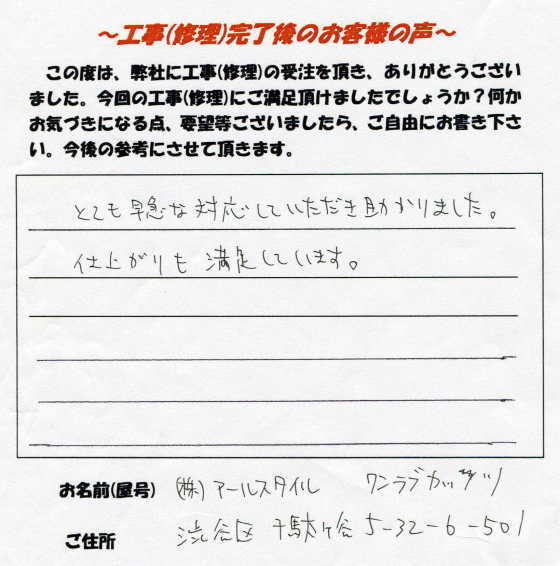 ～工事(修理)完了後のお客様の声～
この度は、弊社に工事(修理)の受注を頂き、ありがとうござい
ました。今回の工事(修理)にご満足頂けましたでしょうか？何か
お気づきになる点、要望等ございましたら、ご自由にお書き下さ
い。今後の参考にさせて頂きます。
とても早急な対応していただき助かりました。
仕上がりも満足しています。
お名前(屋号) (株)アールスタイル ワンラブ
ご住所 渋谷区 千駄ヶ谷 5-32-6-501